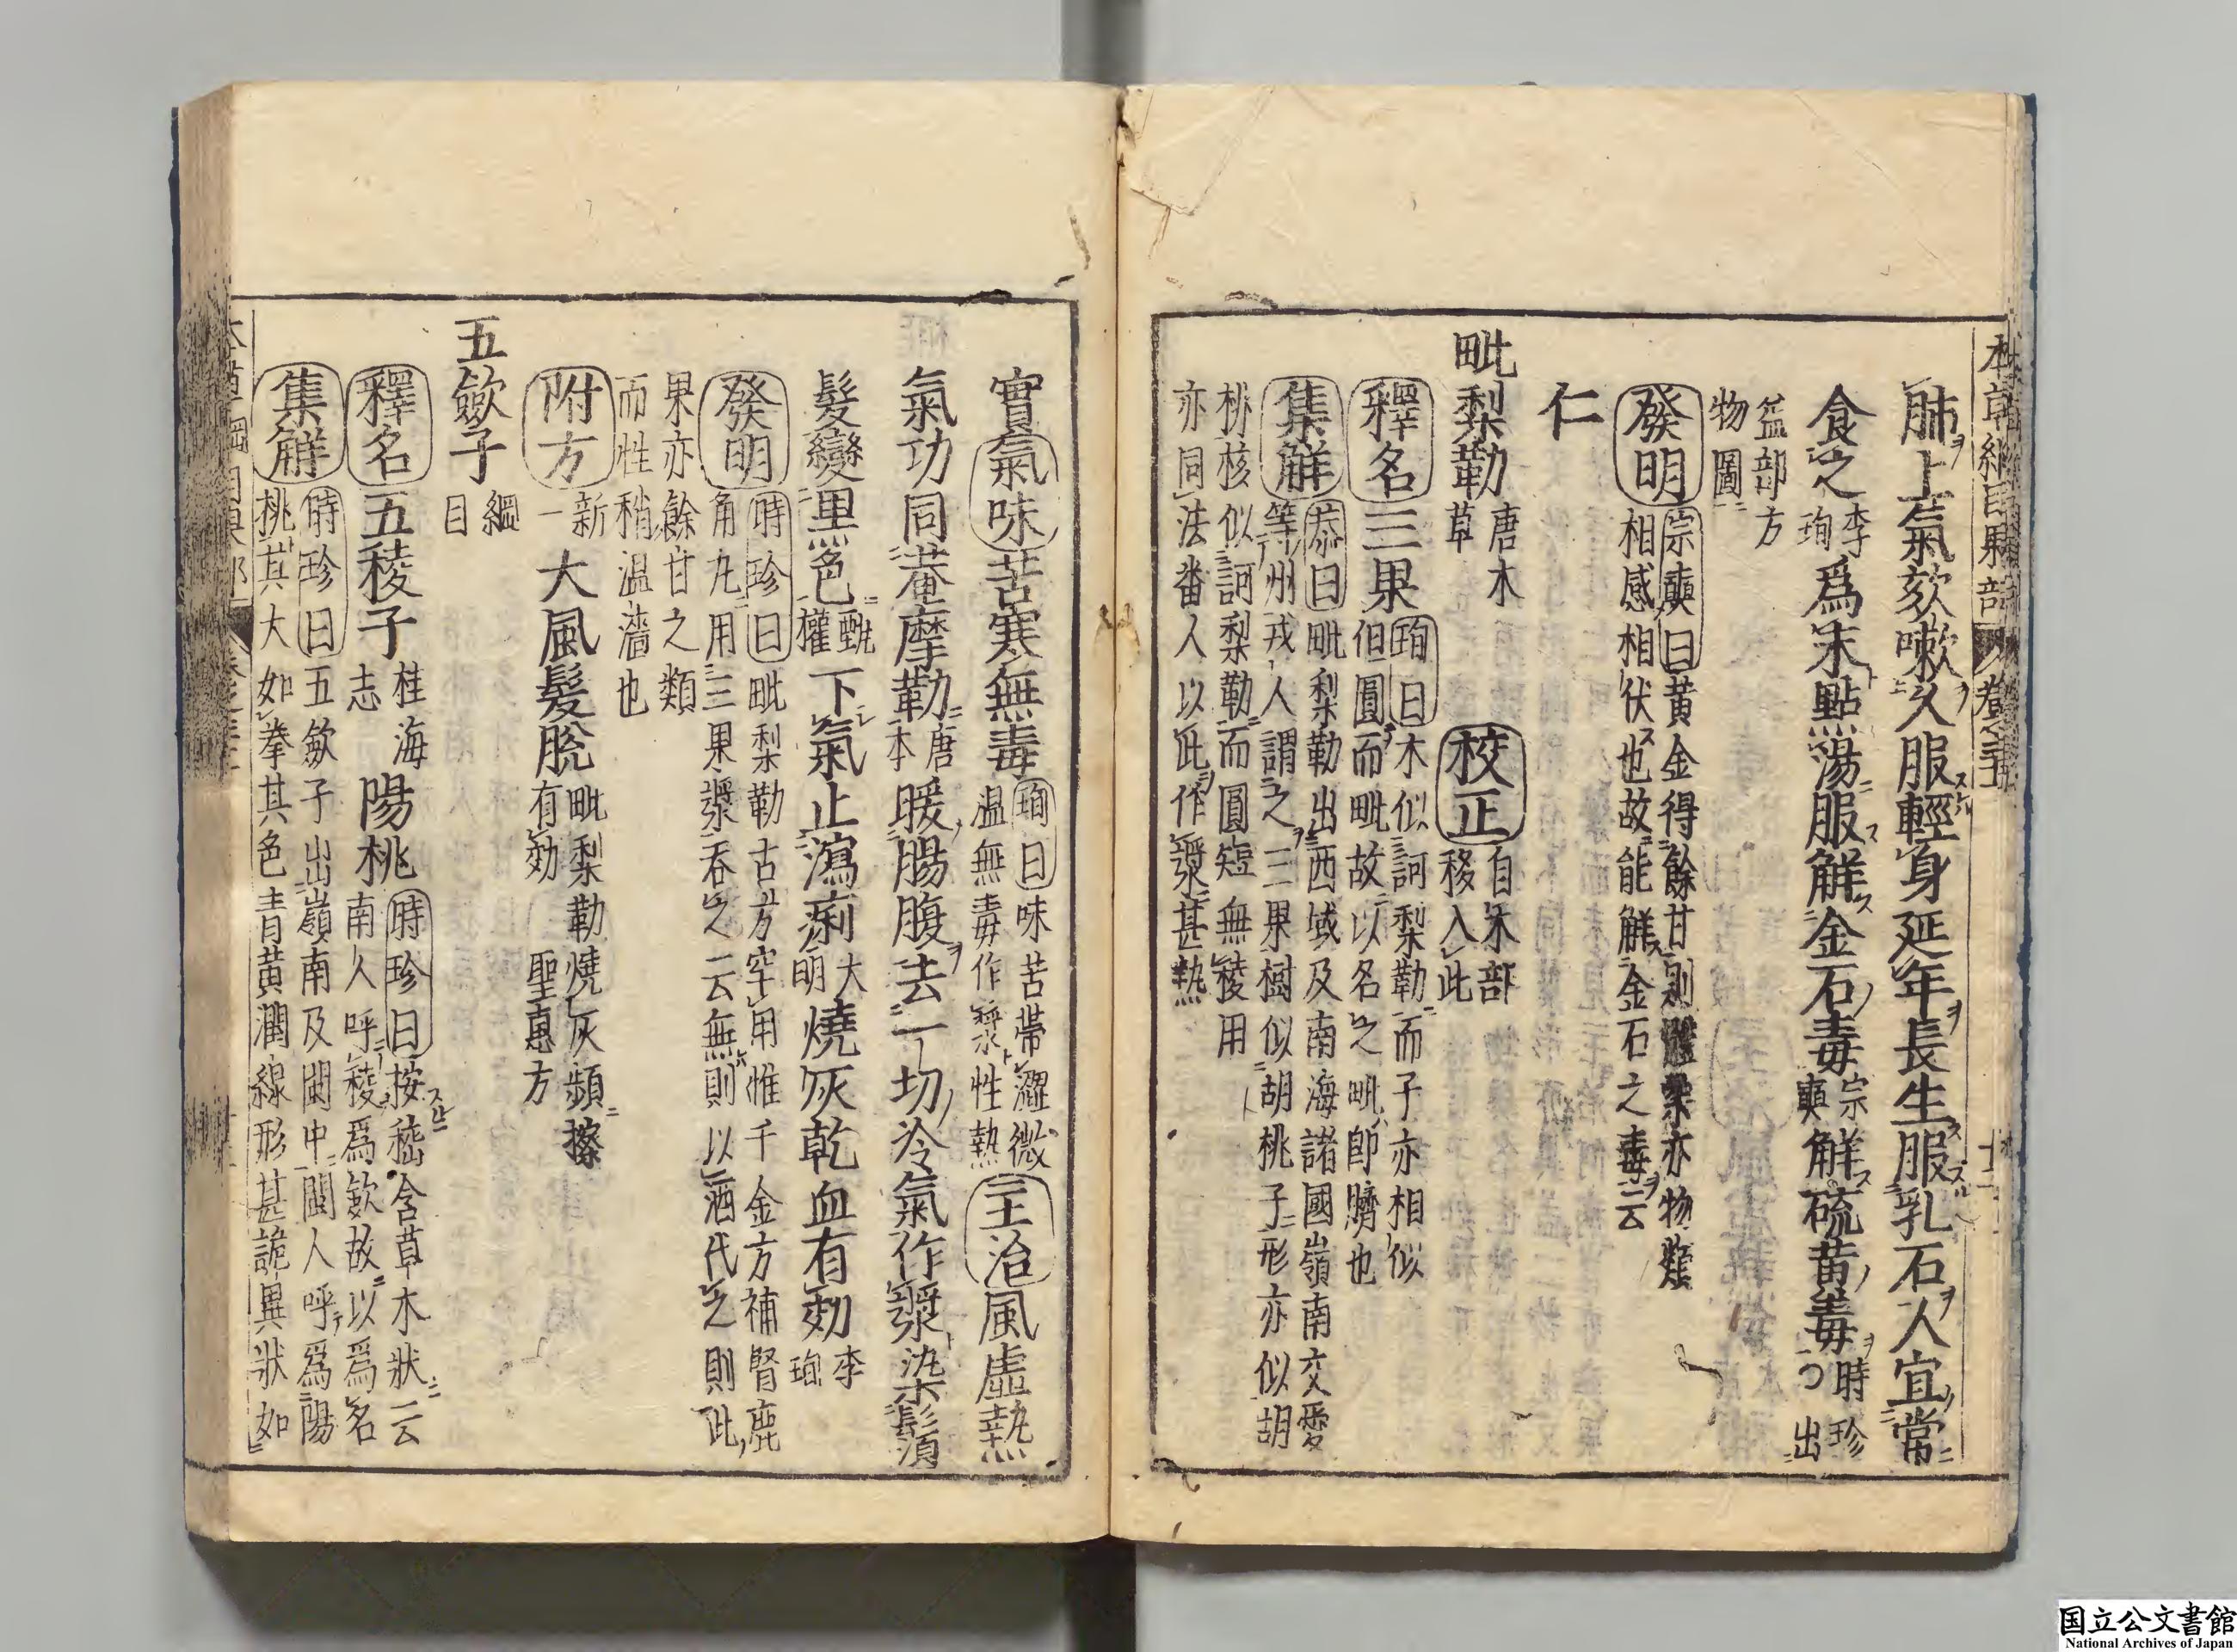 肺上氣欬嗽久服輕身延年長生服乳石人宜常
食之李珣爲末點湯服解金石毒宗奭解硫黄毒時珍出
益部方物圖
發明 宗奭曰黄金得餘甘則體柔亦物類
相感相伏也故能解金石之毒云
仁
毗梨勒 唐木草 校正 自木部移入此
釋名 三果 珣曰木似訶梨勒而子亦相似
但圓而毗故以名之毗即臍也
集解 恭曰毗梨勒出西域及南海諸國嶺南交愛
等州戎人謂之三果樹似胡桃子形亦似胡
桃核似訶梨勒而圓短無稜用
亦同法番人以此作漿甚熱
實 氣味 苦寒無毒 珣曰味苦帶澀微
温無毒作漿性熱 主治 風虛熱
氣功同菴摩勒唐本暖腸腹去一切冷氣作漿染鬚
髮變黑色甄權下氣止瀉痢大明燒灰乾血有効李珣
發明 時珍曰毗梨勒古方罕用惟千金方補腎鹿
角丸用三果漿吞之云無則以酒代之則此
果亦餘甘之類
而性稍温濇也
附方 新一 大風髮脫 毗梨勒燒灰頻擦
有効 聖惠方
五歛子 綱目
釋名 五稜子 桂海志 陽桃 時珍曰按嵇含草木狀云
南人呼稜爲歛故以爲名
集解 時珍曰五歛子出嶺南及閩中閩人呼爲陽
桃其大如拳其色青黄潤綠形甚詭異狀如
国立公文書館
National Archives of Japan